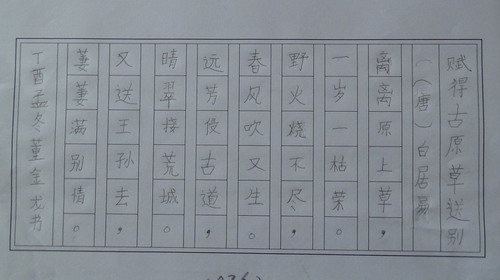 赋得古原草送别
(唐)白居易
离离原上草,
一岁一枯荣。
野火烧不尽,
春风吹又生。
远芳侵古道,
晴翠接荒城。
又送王孙去,
萋萋满别情。
丁酉孟冬董金龙书